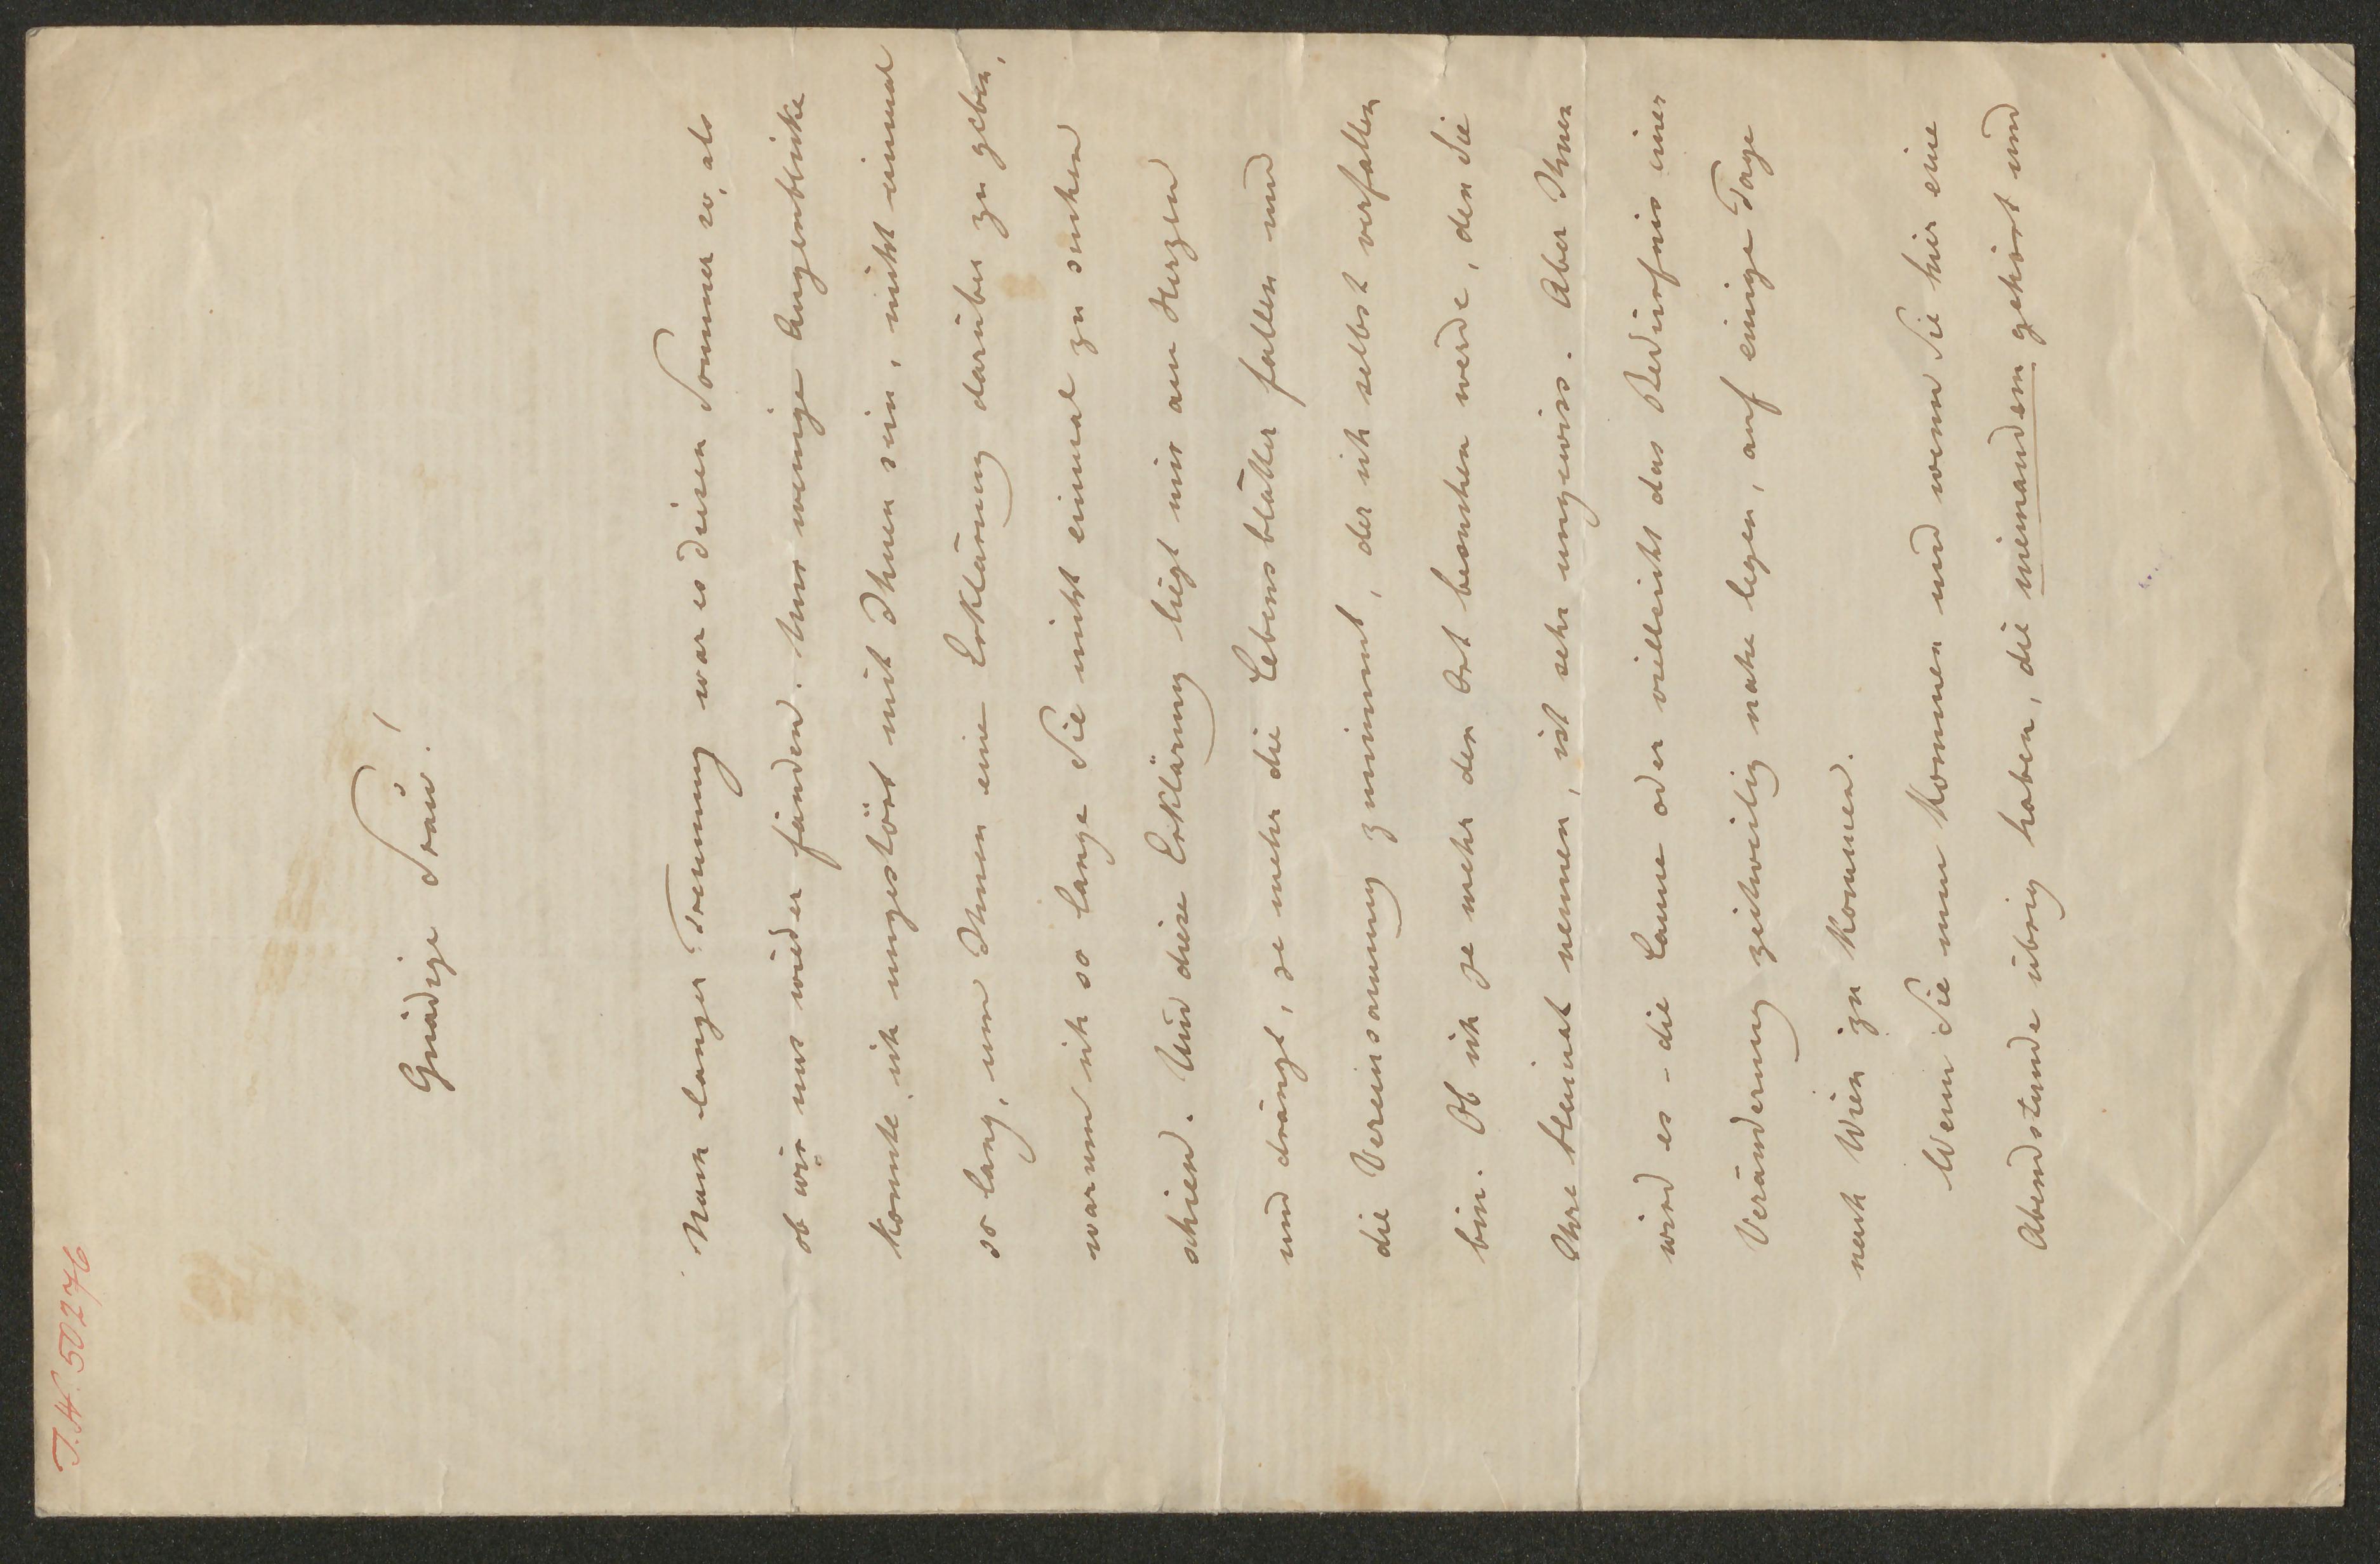 J.N. 50276
Gnädige Frau!
Nach langer Trennung war es diesen Sommer so, als
ob wir uns wieder fänden. Nur wenige Augenblicke
konnte ich ungestört mit Ihnen sein, nicht einmal
so lang, um Ihnen eine Erklärung darüber zu geben,
warum ich so lange Sie nicht einmal zu suchen
schien. Und diese Erklärung liegt mir am Herzen
und drängt, je mehr die Lebensblätter fallen und
die Vereinsamung zunimmt, der ich selbst verfallen
bin. Ob ich je mehr den Ort besuchen werde, den Sie
Ihre Heimat nennen, ist sehr ungewiss. Aber Ihnen
wird es – die Laune oder vielleicht das Bedürfnis einer
Veränderung zeitweilig nahe legen, auf einige Tage
nach Wien zu kommen.
Wenn Sie nun kommen und wenn Sie hier eine
Abendstunde übrig haben, die niemandem gehört und